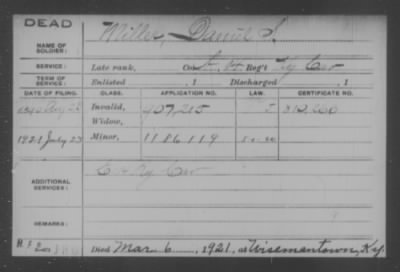 DEAD
Miller, Daniel S.
NAME OF SOLDIER:
SERVICE: Late rank, Co. Reg't Ky Cav
TERM OF SERVICE: Enlisted , 1 Discharged , 1
DATE OF FILING. CLASS. APPLICATION NO. LAW. CERTIFICATE NO.
Aug 23 Invalid, 907,215
Widow,
1921 July 23 Minor, 1186119
ADDITIONAL SERVICES: Ky Cav
REMARKS:
Died Mar 6, 1921, at Wisemantown, Ky.